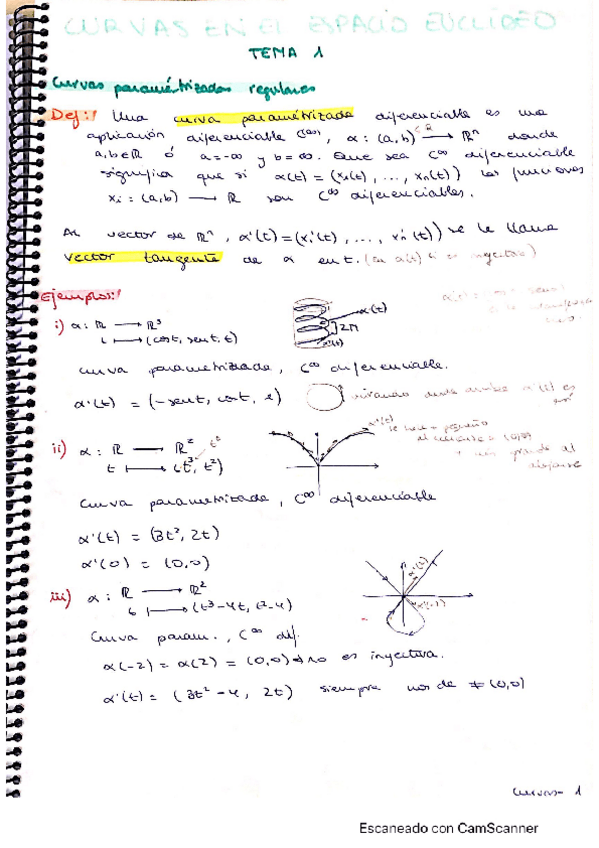 CURVAS EN EL ESPACIO EUCLÍDEO
TEMA 1
Curvas paramétrizadas regulares
Def:! Una curva paramétrizada diferenciable es una
aplicación diferenciable (C∞), α: (a,b) ⊂ℝ → ℝⁿ donde
a,b∈ℝ ó a=-∞ y b=∞. Que sea C∞ diferenciable
significa que si α(t) = (x₁(t), ..., xₙ(t)) las funciones
xᵢ: (a,b) → ℝ son C∞ diferenciables.
Al vector de ℝⁿ, α'(t)=(x₁'(t), ..., xₙ'(t)) se le llama
vector tangente de α en t. (en α(t) si es inyectiva)
Ejemplos:!
i) α: ℝ → ℝ³
t ↦ (cost, sent, t)
α(t)
2π
α'(0)
curva parametrizada, C∞ diferenciable.
α'(t) = (-sent, cost, 1)
mirando desde arriba α'(t) es
así
ii) α: ℝ → ℝ²
t ↦ (t³, t²)
t²
α'(t)
se hace + pequeño
al acercarse a (0,0)
y más grande al
alejarse
Curva parametrizada, C∞ diferenciable
α'(t) = (3t², 2t)
α'(0) = (0,0)
iii) α: ℝ → ℝ²
t ↦ (t³-4t, t²-4)
α'(2)
α'(-2)
Curva param., C∞ dif.
α(-2) = α(2) = (0,0) → no es inyectiva.
α'(t) = (3t²-4, 2t) siempre nos da ≠ (0,0)
Curvas- 1
Escaneado con CamScanner